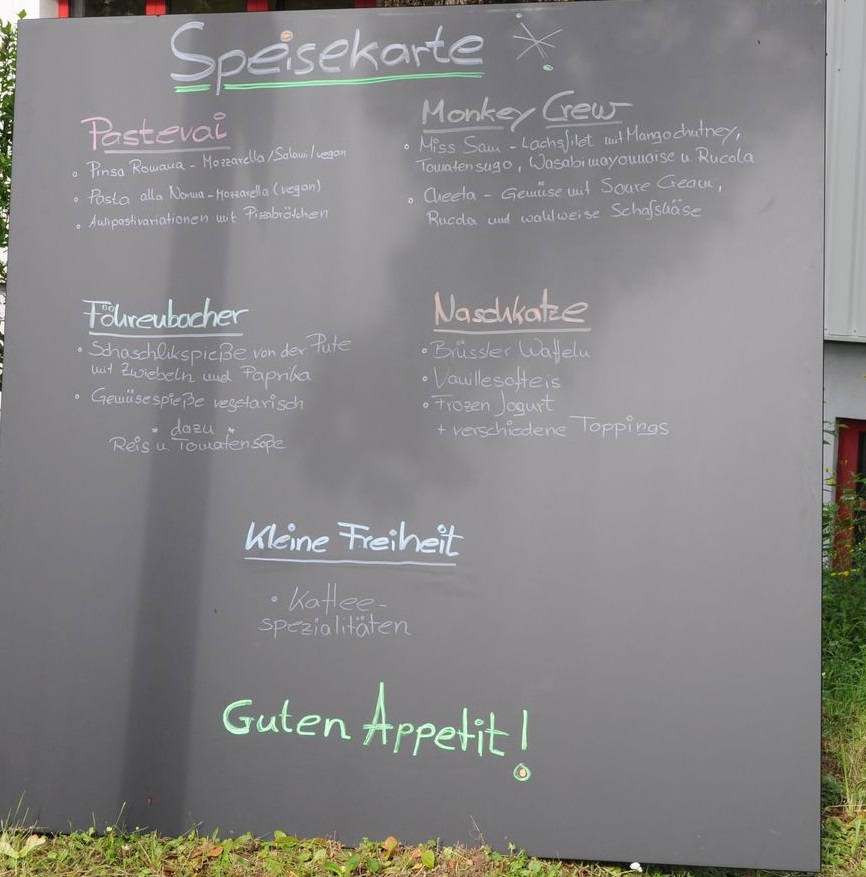 Speisekarte
Pastevai
• Pinsa Romana - Mozzarella/Salami/vegan
• Pasta alla Nonna - Mozzarella (vegan)
• Antipastivariationen mit Pizzabrötchen
Monkey Crew
• Miss Sam - Lachsfilet mit Mangochutney,
Tomatensugo, Wasabimayonnaise u. Rucola
• Cheeta - Gemüse mit Soure Cream,
Rucola und wahlweise Schafskäse
Föhrenbacher
• Schaschlikspieße von der Pute
mit Zwiebeln und Paprika
• Gemüsespieße vegetarisch
* dazu *
Reis u. Tomatensoße
Naschkatze
• Brüssler Waffeln
• Vanillesofteis
• Frozen Jogurt
+ verschiedene Toppings
Kleine Freiheit
• Kaffee-
spezialitäten
Guten Appetit!